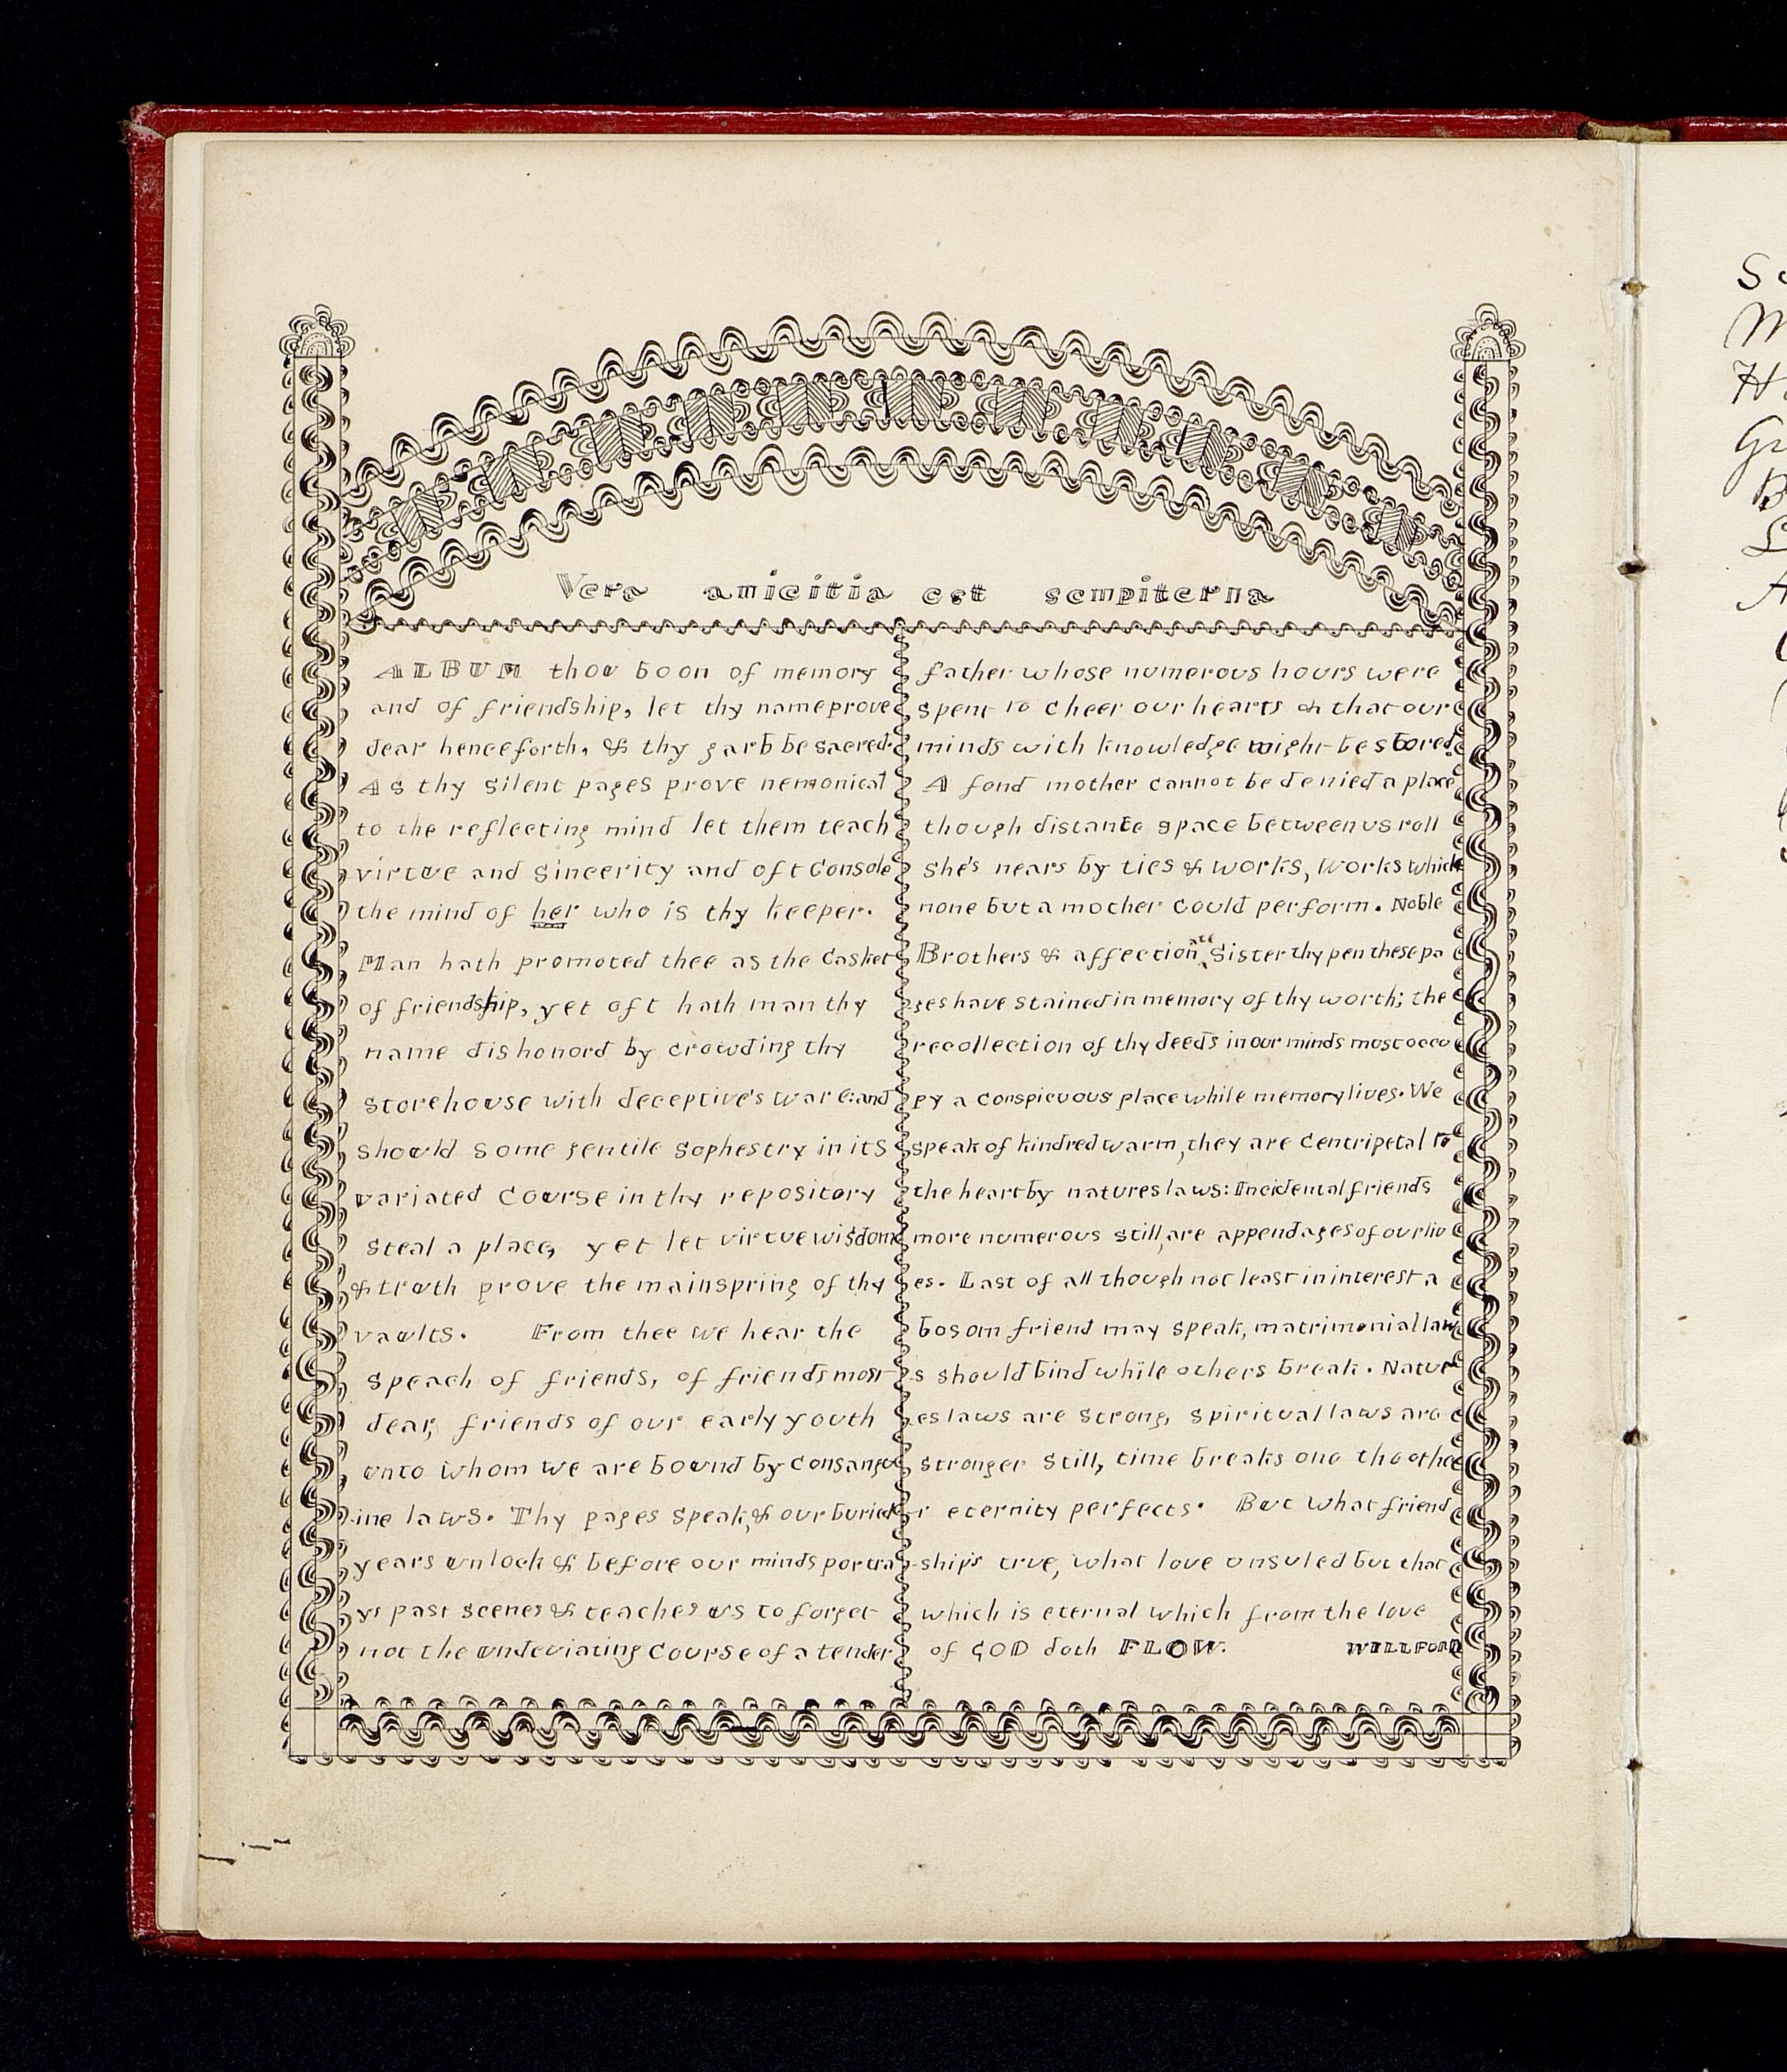 Vera amicitia est sempiterna
ALBUM thou boon of memory
and of friendship, let thy name prove
dear henceforth, & thy garb be sacred.
As thy silent pages prove nemonical
to the reflecting mind let them teach
virtue and sincerity and oft Console
the mind of her who is thy keeper.
Man hath promoted thee as the Casket
of friendship, yet oft hath man thy
name dishonord by crowding thy
storehouse with deceptive's ware: and
should some gentile sophestry in its
variated Course in thy repository
steal a place, yet let virtue wisdom
& truth prove the mainspring of thy
vaults. From thee we hear the
speach of friends, of friends most
dear, friends of our early youth
unto whom we are bound by Consangu
ine laws. Thy pages speak, & our buried
years unlock & before our minds portra
ys past scenes & teaches us to forget
not the undeviating Course of a tender
father whose numerous hours were
spent to cheer our hearts & that our
minds with knowledge might be stored.
A fond mother cannot be denied a place
though distante space between us roll
She's nears by ties & works, works which
none but a mother could perform. Noble
Brothers & affectionate Sister thy pen these pa
ges have stained in memory of thy worth; the
recollection of thy deeds in our minds most occu
py a conspicuous place while memory lives. We
speak of kindred warm, they are Centripetal to
the heart by natures laws: Incidental friends
more numerous still, are appendages of our liv
es. Last of all though not least in interest a
bosom friend may speak, matrimonial law
s should bind while others break. Natur
es laws are strong, spiritual laws are
stronger still, time breaks one the othe
r eternity perfects. But what friend
-ship's true, what love unsuled but that
which is eternal which from the love
of GOD doth FLOW. WILLFORD
S
M
H
Gr
B
L
A